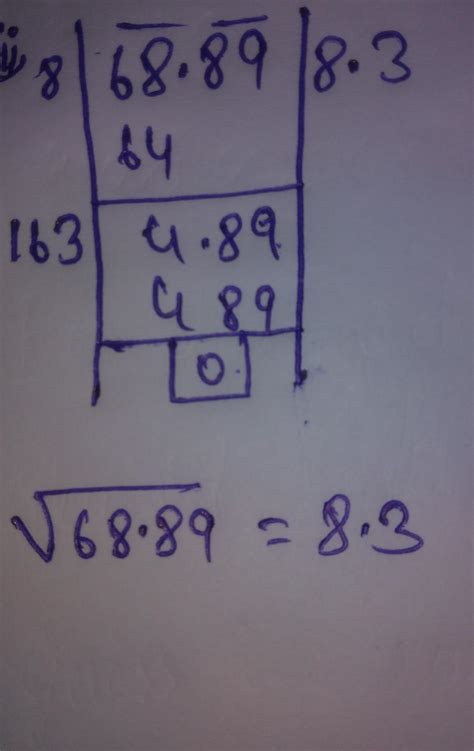 8 68.89 8.3
64
163 4.89
4 89
0
√68.89 = 8.3